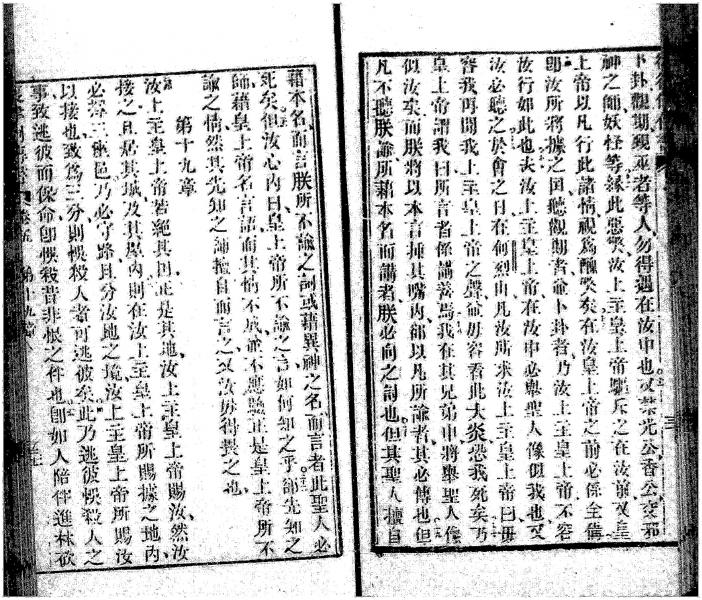 卜卦觀期覡巫者等人勿得遇在汝中也又禁光公香公交邪
神之師妖怪等緣此惡獘汝上主皇上帝驅斥之在汝前又皇
上帝以凡行此諸情視爲醜獘矣在汝皇上帝之前必係全備
卽汝所將據之國聽觀期者兪卜卦者乃汝上主皇上帝不容
汝行如此也夫汝上主皇上帝在汝中必舉聖人像似我也又
汝必聽之於會之日在何烈山凡汝所求汝上主皇上帝曰毋
容我再聞我上主皇上帝之聲兪毋容看此大炎恐我死矣乃
皇上帝謂我曰所言者係講善焉我在其兄弟中將舉聖人像
似汝矣而朕將以本言揷其嘴內卽以凡所諭者其必傳也但
凡不聽朕諭所藉本名而講者朕必向之討也但其聖人擅自
藉本名而言朕所不諭之詞或藉異神之名而言者此聖人必
死矣但汝心內曰皇上帝所不諭之言如何知之乎卽先知之
師藉皇上帝名言語而其情不成兪不應驗正是皇上帝所不
諭之情然其先知之師擅自而言之又汝毋得畏之也
第十九章
汝上主皇上帝若絕其囯正是其地汝上主皇上帝賜汝然汝
接之且居其城及其屋內則在汝上主皇上帝所賜據之地內
必聲三座邑乃必守路且分汝地之境汝上主皇上帝所賜汝
以接也致爲三分則悞殺人者可逃彼矣此乃逃彼悞殺人之
事致逃彼而保命卽悞殺昔非恨之伴也卽如人陪伴進林砍
卷五 第十九章